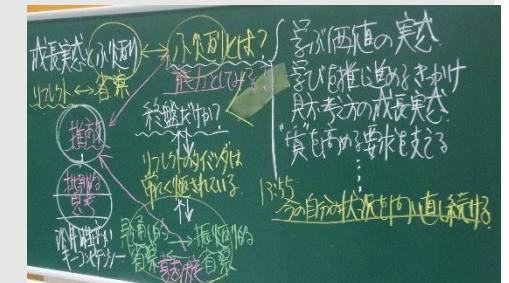 成長実感と振り返り ↔ 振り返りとは?
リフレクト ↔ 省察
能力としてみる
終盤だけか?
リフレクトのタイミングは
常に
されている
批判的
思考
キーコンピテンシー
見通し的な
省察
振り返り的な
省察
学ぶ価値の実感
学びを推し進めるきっかけ
見方考え方の成長実感
"質"を高める要求を支える
13:55
今の自分の状況を問い直し続ける